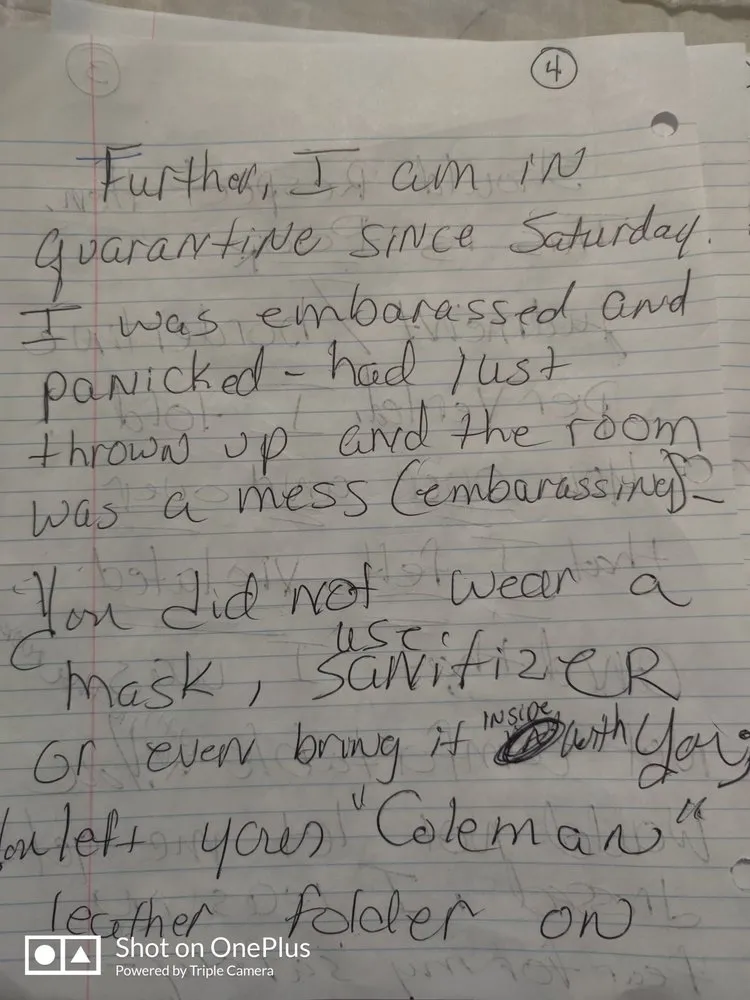 3
4
Further, I am in
quarantine since Saturday.
I was embarassed and
panicked - had just
thrown up and the room
was a mess (embarassing)-
You did not wear a
use
mask, sanitizer
or even bring it inside with you,
You left your "Coleman"
leather folder on
Shot on OnePlus
Powered by Triple Camera